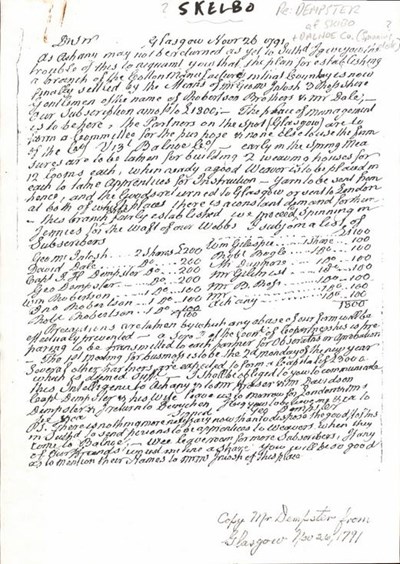 SKELBO
Re: DEMPSTER
of SKIBO
+ BALNOE Co. (Spinning ?
Dr Sir Glasgow Novr 26 1791
As Achany may not be returned as yet to Suthd I give you the
trouble of this to acquaint you that the plan for establishing
a branch of the Cotton Manufacture in that Country is now
finally settled by the Means of Mr Geo McIntosh & Profs here
Gentlemen of the name of Robertson Brothers & Mr Dale,
Our Subscription amots to £1800,— The place of management
is to be here, The Partners on the Spot (Glasgow) are to
form a Committee for the purpose & none else to use the firm
of the Coy Viz Balnoe Coy — early in the Spring Mea
sures are to be taken for building 2 weaving houses for
12 Looms each, when ready a good Weaver is to be placed in
each to take Apprentices for Instruction — Yarn to be sent from
hence, and the Goods returned to Glasgow or sent to London
at both of which places there is a constant demand for them
— this branch fairly established we proceed Spinning in
Jennies for the Waft of our Webbs I subjoin a list of
Subscribers £1100
Geo McIntosh 2 Shares £200 Wm Gillespie 1 Share 100
David Dale Do 200 Robt Bogle 1 Do 100
Capt Dempster Do 200 100
Geo Dempster Do 200 Mr Gilchrist 1 Do 100
Wm Robertson 1 Do 100 100
Robertson 1 Do 100 100
Robertson 1 Do 100 Achany 100
£1800
Precautions are taken by which any abuse of our firm will be
effectually prevented — of the Contract of Copartnership is pre
paring to be transmitted to each partner for Observation or approbation
The 1st meeting for business is to be the 2d monday of the new year
Several other partners are expected to form a Capital of £3000
which is deemed Sufft — I shall be obliged to you to communicate
this Intelligence to Achany & to Mr Fraser & Mr Davidson
Capt Dempster & his wife leave us to morrow for London & Mrs
Dempster & I return to Dunichen where you will give my Yea to
Geo Dempster
PS. There is nothing more necessary now than to dispose the good folks
in Suthd to send persons to be apprentices to Weavers when they
come to Balnoe, — Wee leave room for more Subscribers if any
of Our friends incline a Share you will be so good
as to mention their Names to Mr McIntosh of this place
Copy Mr Dempster from
Glasgow Nov 26, 1791